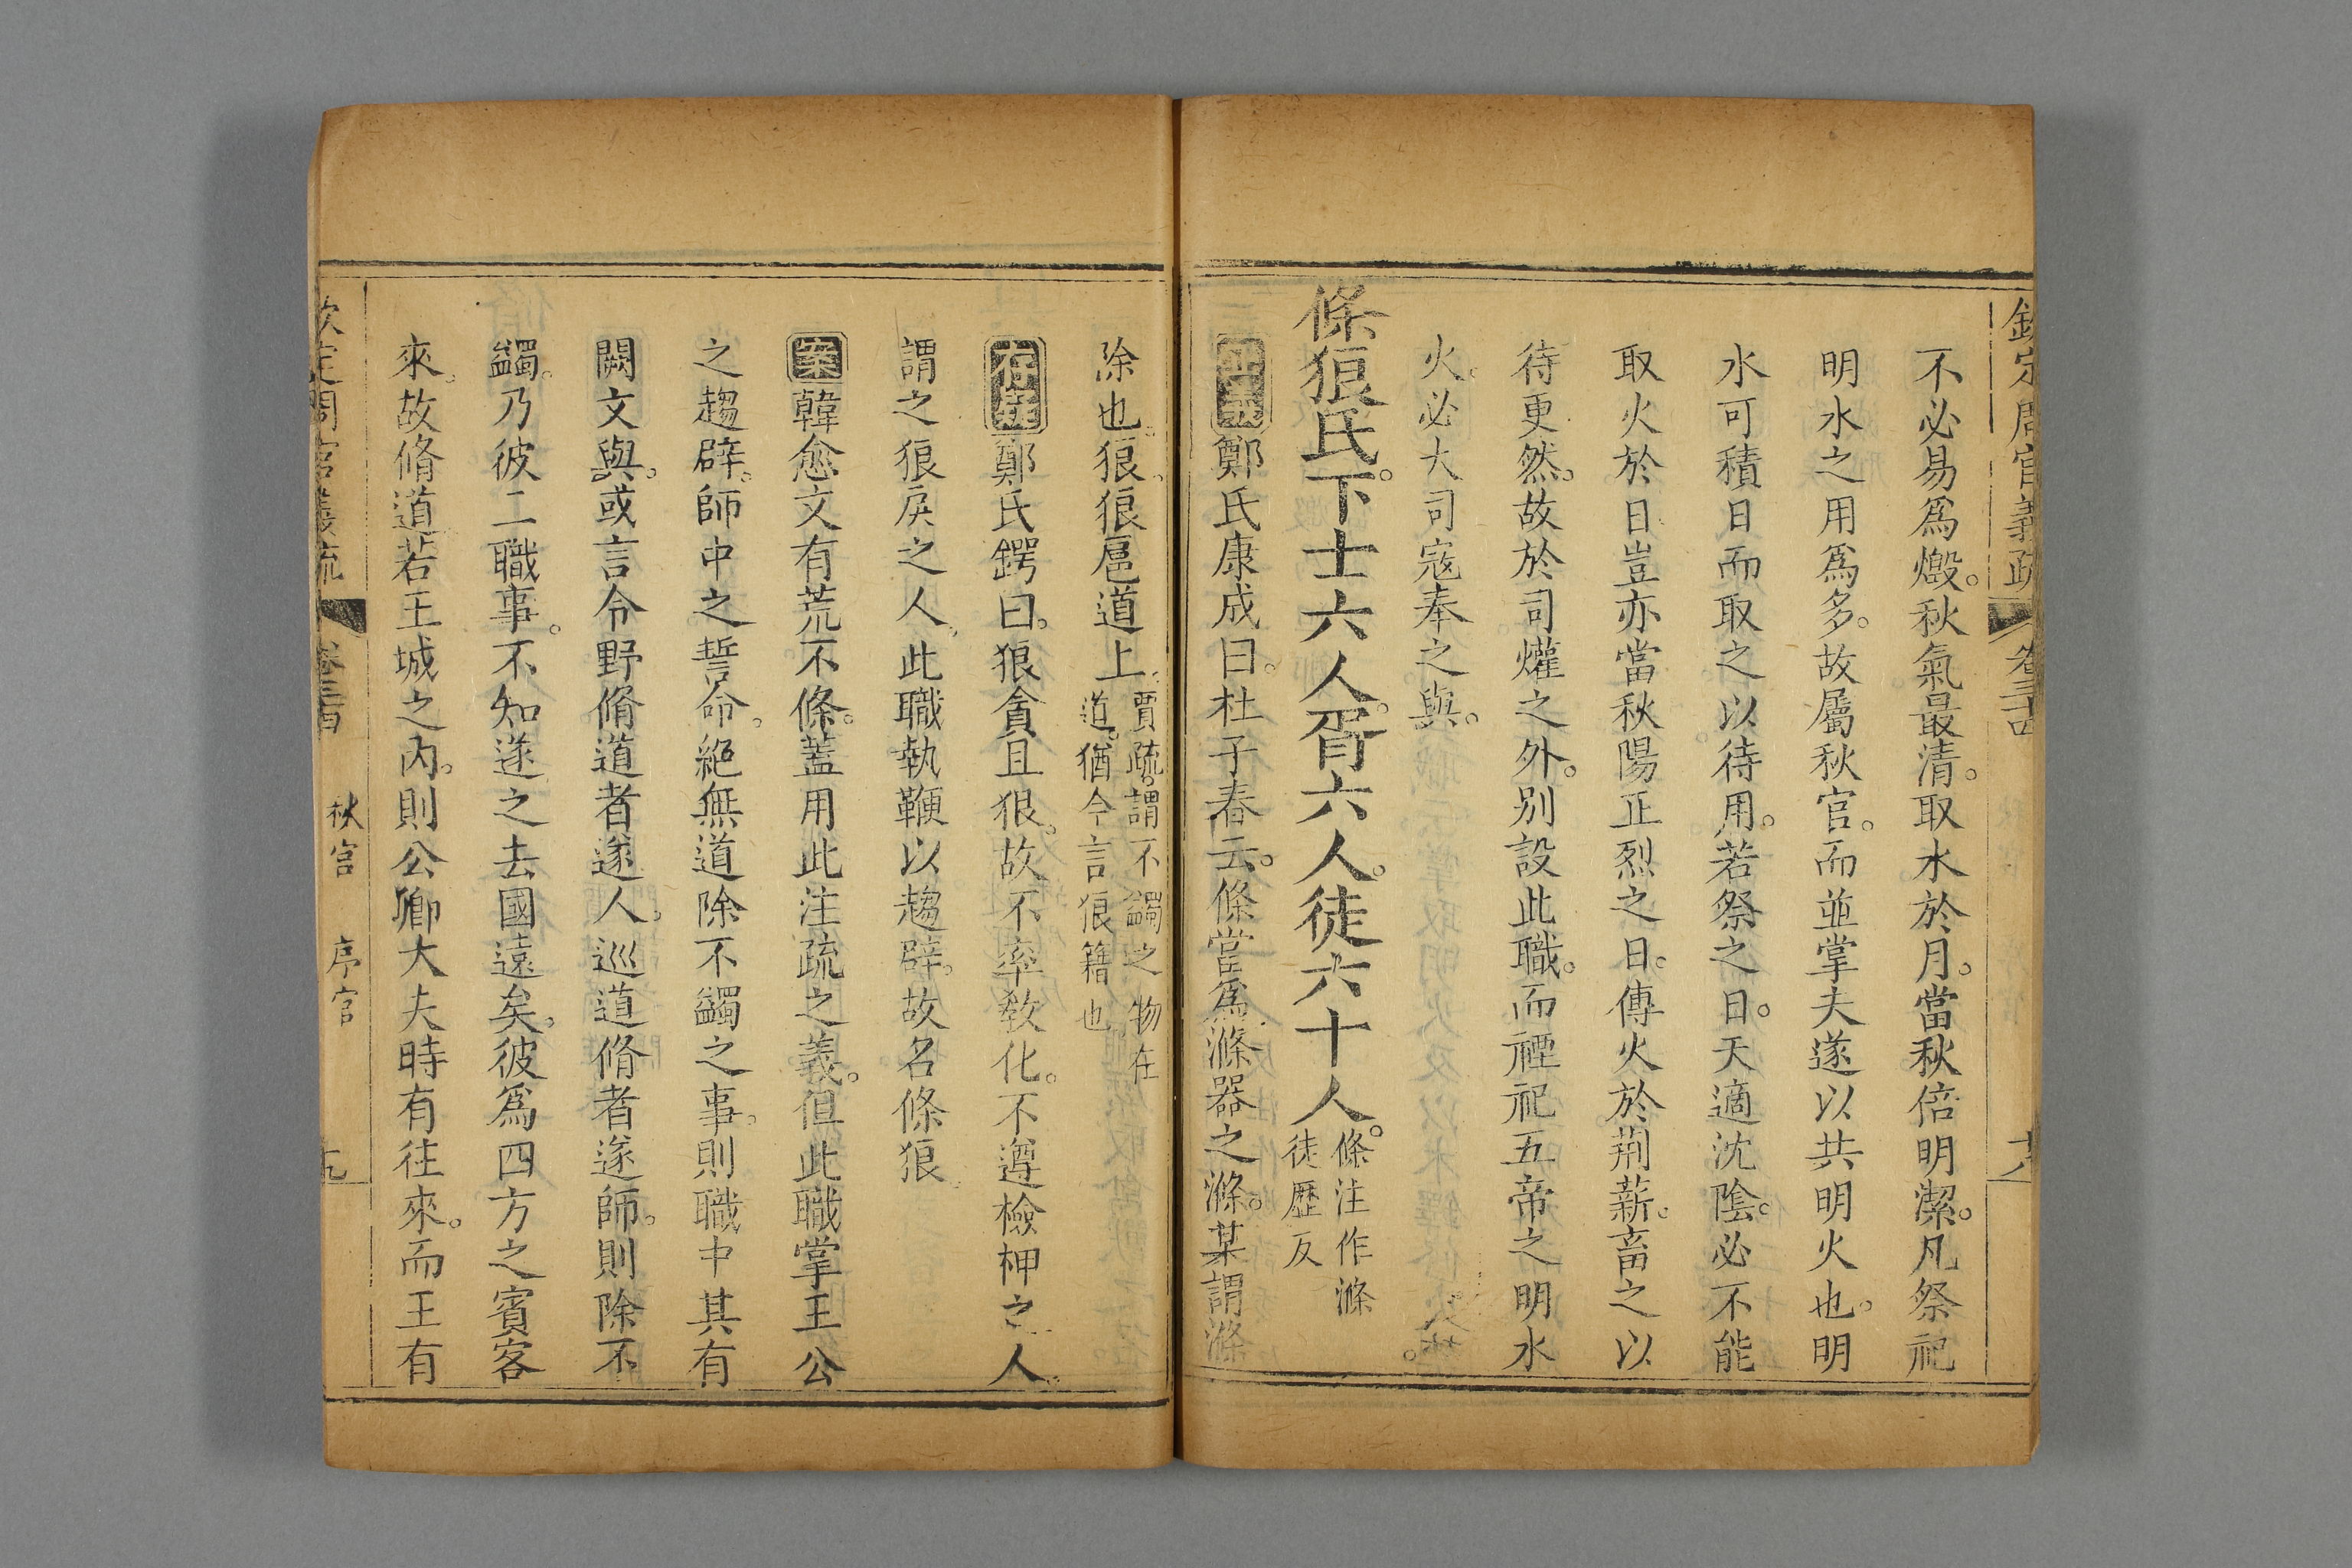 欽定周官義疏 卷三十四 十八
不必易爲燬。秋氣最清。取水於月。當秋倍明潔。凡祭祀
明水之用爲多。故屬秋官。而並掌夫遂以共明火也。明
水可積日而取之以待用。若祭之日。天適沈陰。必不能
取火於日豈亦當秋陽正烈之日。傳火於荆薪。畜之以
待更然。故於司爟之外。別設此職。而禋祀五帝之明水
火。必大司寇奉之與。
條狼氏。下士六人。胥六人。徒六十人。條注作滌
徒歷反
正義鄭氏康成曰。杜子春云。條當爲滌器之滌。某謂滌
除也。狼。狼扈道上。賈疏。謂不蠲之物在
道。猶今言狼籍也
存疑鄭氏鍔曰。狼貪且狠。故不率敎化。不遵檢柙之人。
謂之狼戾之人。此職執鞭以趨辟。故名條狼
案韓愈文有荒不條。蓋用此注疏之義。但此職掌王公
之趨辟。師中之誓命。絕無道除不蠲之事。則職中其有
闕文與。或言令野脩道者遂人。巡道脩者遂師。則除不
蠲。乃彼二職事。不知遂之去國遠矣。彼爲四方之賓客
來。故脩道。若王城之內。則公卿大夫時有往來。而王有
欽定周官義疏 卷三十四 秋官 序官 十九